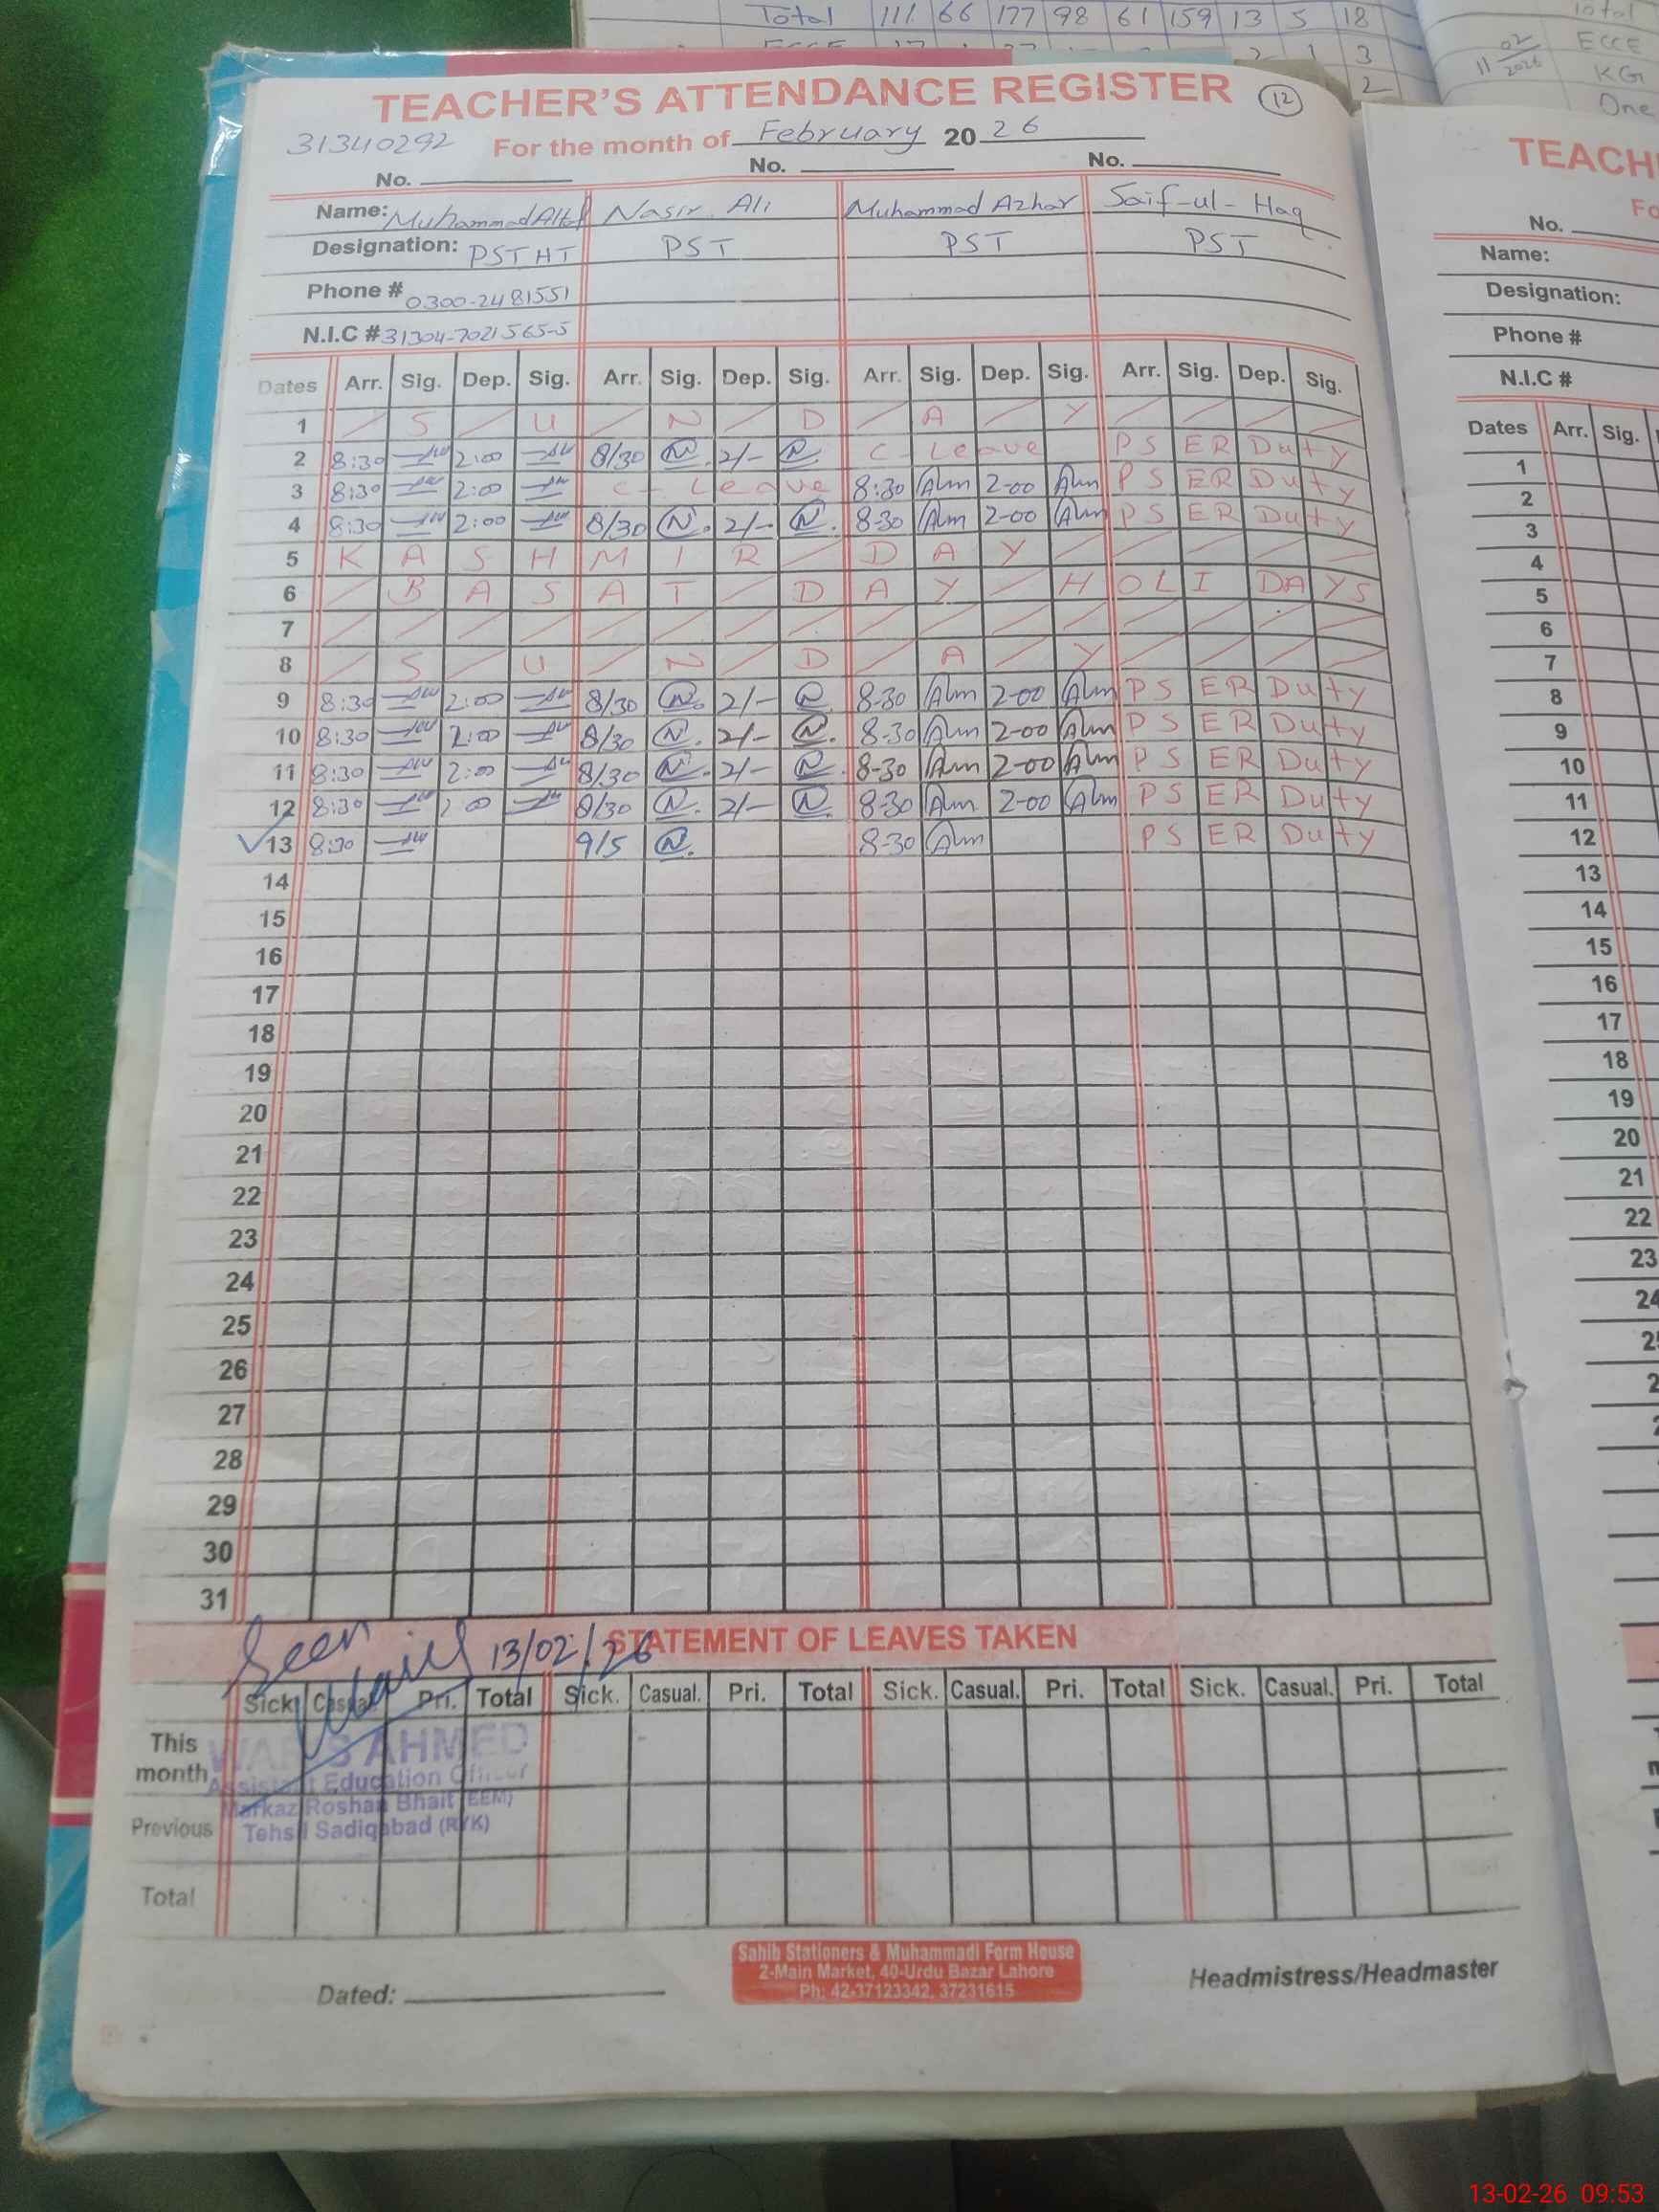 Total 111 66 177 98 61 159 13 5 18
3
2
Total
ECCE
11 02 2026
KG
One
TEACHER'S ATTENDANCE REGISTER 12
31340292 For the month of February 20 26
No. No. No.
Name: Muhammad Altaf Nasir Ali Muhammad Azhar Saif-ul-Haq
Designation: PST HT PST PST PST
Phone # 0300-2481551
N.I.C # 31304-7021565-5
Dates Arr. Sig. Dep. Sig. Arr. Sig. Dep. Sig. Arr. Sig. Dep. Sig. Arr. Sig. Dep. Sig.
1 / S / U / N / D / A / Y / / / /
2 8:30 2:00 8/30 N. 2/- N. C- Leave PSER Duty
3 8:30 2:00 C- Leave 8:30 Alm 2-00 Alm PSER Duty
4 8:30 2:00 8/30 N. 2/- N. 8-30 Alm 2-00 Alm PSER Duty
5 KASHMIR / DAY / / / / /
6 / BASAT / DAY / HOLIDAYS
7 / / / / / / / / / / / / / / / /
8 / S / U / N / D / A / Y / / / /
9 8:30 2:00 8/30 N. 2/- N. 8-30 Alm 2-00 Alm PSER Duty
10 8:30 2:00 8/30 N. 2/- N. 8-30 Alm 2-00 Alm PSER Duty
11 8:30 2:00 8/30 N. 2/- N. 8-30 Alm 2-00 Alm PSER Duty
12 8:30 2:00 8/30 N. 2/- N. 8-30 Alm 2-00 Alm PSER Duty
13 8:30 9/5 N. 8-30 Alm PSER Duty
14
15
16
17
18
19
20
21
22
23
24
25
26
27
28
29
30
31
Seen
13/02/26
STATEMENT OF LEAVES TAKEN
Sick. Casual. Pri. Total Sick. Casual. Pri. Total Sick. Casual. Pri. Total Sick. Casual. Pri. Total
This month
Previous
Total
WARIS AHMED
Assistant Education Officer
Markaz Roshan Bhait (EEM)
Tehsil Sadiqabad (RYK)
Dated:
Sahib Stationers & Muhammadi Form House
2-Main Market, 40-Urdu Bazar Lahore
Ph: 42-37123342, 37231615
Headmistress/Headmaster
TEACH
Fo
No.
Name:
Designation:
Phone #
N.I.C #
Dates Arr. Sig.
1
2
3
4
5
6
7
8
9
10
11
12
13
14
15
16
17
18
19
20
21
22
23
24
13-02-26 09:53